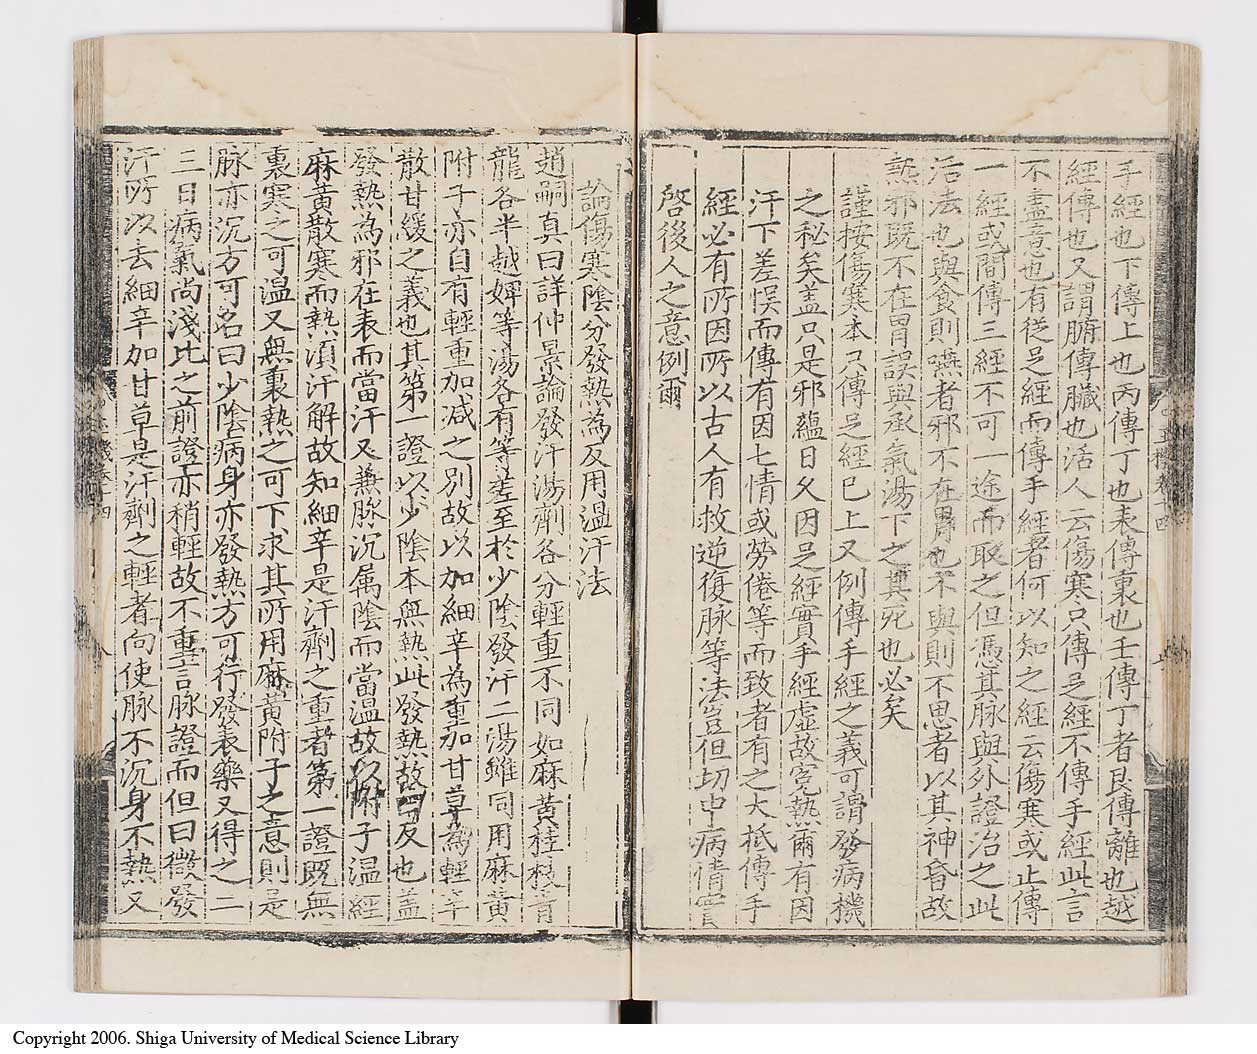 手經也下傳上也丙傳丁也表傳裏也壬傳丁者艮傳離也越
經傳也又謂腑傳臟也活人云傷寒只傳足經不傳手經此言
不盡意也有從足經而傳手經者何以知之經云傷寒或止傳
一經或間傳三經不可一途而取之但憑其脉與外證治之此
活法也與食則嚥者邪不在胃也不與則不思者以其神昏故
熱邪既不在胃誤與承氣湯下之其死也必矣
謹按傷寒本只傳足經巳上又例傳手經之義可謂發病機
之秘矣盖只是邪蘊日久因足經實手經虚故寃熱爾有因
汗下差悮而傳有因七情或勞倦等而致者有之大抵傳手
經必有所因所以古人有救逆復脉等法豈但切中病情實
啓後人之意例爾
論傷寒陰分發熱為反用温汗法
趙嗣真曰詳仲景論發汗湯劑各分輕重不同如麻黄桂枝青
龍各半越婢等湯各有等差至於少陰發汗二湯雖同用麻黄
附子亦自有輕重加减之别故以加細辛為重加甘草為輕辛
散甘緩之義也其第一證以少陰本無熱此發熱故曰反也盖
發熱為邪在表而當汗又兼脉沉属陰而當温故以附子温經
麻黄散寒而熱湏汗解故知細辛是汗劑之重者第二證既無
裏寒之可温又無裏熱之可下求其所用麻黄附子之意則是
脉亦沉方可名曰少陰病身亦發熱方可行發表藥又得之二
三日病氣尚淺比之前證亦稍輕故不重言脉證而但曰微發
汗所以去細辛加甘草是汗劑之輕者向使脉不沉身不熱又
Copyright 2006. Shiga University of Medical Science Library